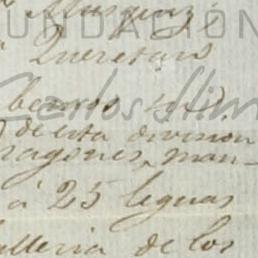 FUNDACIÓN
Queretaro
Carlos Slim
de esta division
ragones, man-
à 25 leguas
alleria de los